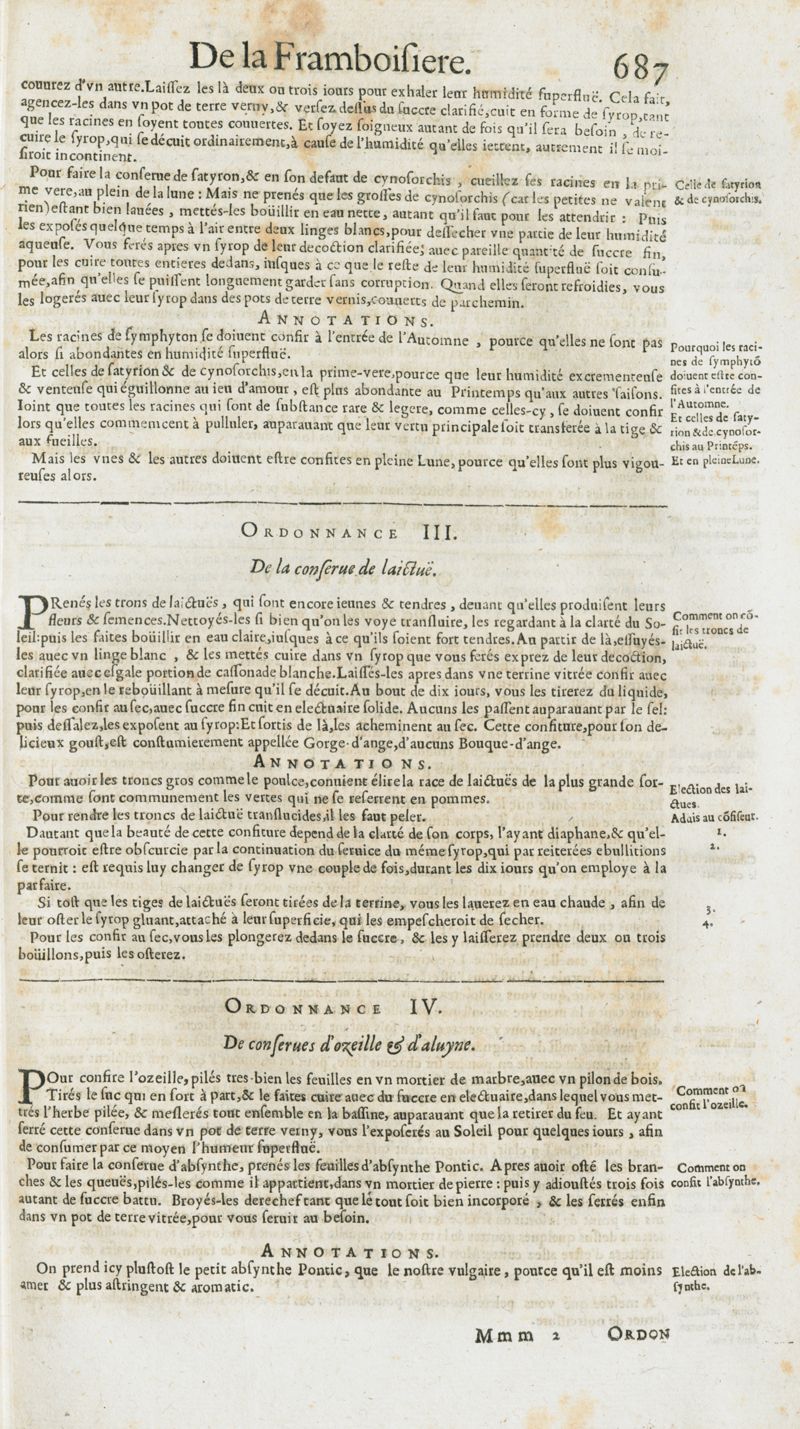 De la Framboiſiere. 687
couurez d'vn autre.Laiſſez les là deux ou trois iours pour exhaler leur humidité ſuperfluë. Cela fait,
agencez-les dans vn pot de terre verny,& verſez deſſus du ſuccre clarifié,cuit en forme de ſyrop,tant
que les racines en ſoyent toutes couuertes. Et ſoyez ſoigneux autant de fois qu'il ſera beſoin , de re-
cuire le ſyrop,qui ſe décuit ordinairement,à cauſe de l'humidité qu'elles iettent, autrement il ſe moi-
ſiroit incontinent.
Pour faire la conſerue de ſatyron,& en ſon defaut de cynoſorchis , cueillez ſes racines en la pri-
me vere,au plein de la lune : Mais ne prenés que les groſſes de cynoſorchis (car les petites ne valent
rien)eſtant bien lauées , mettés-les boüillir en eau nette, autant qu'il faut pour les attendrir : Puis
les expoſés quelque temps à l'air entre deux linges blancs,pour deſſecher vne partie de leur humidité
aqueuſe. Vous ferés apres vn ſyrop de leur decoction clarifiée, auec pareille quantité de ſuccre fin,
pour les cuire toutes entieres dedans, iuſques à ce que le reſte de leur humidité ſuperfluë ſoit conſu-
mée,afin qu'elles ſe puiſſent longuement garder ſans corruption. Quand elles ſeront refroidies, vous
les logerés auec leur ſyrop dans des pots de terre vernis,couuerts de parchemin.
Celle de ſatyrion
& de cynoſorchis.
ANNOTATIONS.
Les racines de ſymphyton ſe doiuent confir à l'entrée de l'Automne , pource qu'elles ne ſont pas
alors ſi abondantes en humidité ſuperfluë.
Et celles de ſatyrion & de cynoſorchis,en la prime-vere,pource que leur humidité excrementeuſe
& venteuſe qui éguillonne au ieu d'amour , eſt plus abondante au Printemps qu'aux autres ſaiſons.
Ioint que toutes les racines qui ſont de ſubſtance rare & legere, comme celles-cy , ſe doiuent confir
lors qu'elles commencent à pulluler, auparauant que leur vertu principale ſoit transferée à la tige &
aux fueilles.
Mais les vnes & les autres doiuent eſtre confites en pleine Lune, pource qu'elles ſont plus vigou-
reuſes alors.
Pourquoi les raci-
nes de ſymphytō
doiuent eſtre con-
fites à l'entrée de
l'Automne.
Et celles de ſaty-
rion & de cynoſor-
chis au Printēps.
Et en pleine Lune.
ORDONNANCE III.
De la conſerue de laictuë.
PRenés les trons de laictuës , qui ſont encore ieunes & tendres , deuant qu'elles produiſent leurs
fleurs & ſemences.Nettoyés-les ſi bien qu'on les voye tranſluire, les regardant à la clarté du So-
leil:puis les faites boüillir en eau claire,iuſques à ce qu'ils ſoient fort tendres.Au partir de là,eſſuyés-
les auec vn linge blanc , & les mettés cuire dans vn ſyrop que vous ferés exprez de leur decoction,
clarifiée auec eſgale portion de caſſonade blanche.Laiſſés-les apres dans vne terrine vitrée confir auec
leur ſyrop,en le reboüillant à meſure qu'il ſe décuit.Au bout de dix iours, vous les tirerez du liquide,
pour les confir au ſec,auec ſuccre fin cuit en electuaire ſolide. Aucuns les paſſent auparauant par le ſel:
puis deſſalez,les expoſent au ſyrop:Et ſortis de là,les acheminent au ſec. Cette confiture,pour ſon de-
licieux gouſt,eſt conſtumierement appellée Gorge-d'ange,d'aucuns Bouque-d'ange.
Comment on cō-
fit les troncs de
laictuë.
ANNOTATIONS.
Pour auoir les troncs gros comme le poulce,conuient élire la race de laictuës de la plus grande ſor-
te,comme ſont communement les vertes qui ne ſe reſerrent en pommes.
Pour rendre les troncs de laictuë tranſlucides,il les faut peler.
Dautant que la beauté de cette confiture depend de la clarté de ſon corps, l'ayant diaphane,& qu'el-
le pourroit eſtre obſcurcie par la continuation du ſeruice du méme ſyrop,qui par reiterées ebullitions
ſe ternit : eſt requis luy changer de ſyrop vne couple de fois,durant les dix iours qu'on employe à la
parfaire.
Si toſt que les tiges de laictuës ſeront tirées de la terrine, vous les lauerez en eau chaude , afin de
leur oſter le ſyrop gluant,attaché à leur ſuperficie, qui les empeſcheroit de ſecher.
Pour les confir au ſec,vous les plongerez dedans le ſuccre, & les y laiſſerez prendre deux ou trois
boüillons,puis les oſterez.
Election des lai-
ctues.
Aduis au cōfiſeur.
1.
2.
3.
4.
ORDONNANCE IV.
De conſerues d'ozeille & d'aluyne.
POur confire l'ozeille,pilés tres-bien les feuilles en vn mortier de marbre,auec vn pilon de bois.
Tirés le ſuc qui en ſort à part,& le faites cuire auec du ſuccre en electuaire,dans lequel vous met-
trés l'herbe pilée, & meſlerés tout enſemble en la baſſine, auparauant que la retirer du feu. Et ayant
ſerré cette conſerue dans vn pot de terre verny, vous l'expoſerés au Soleil pour quelques iours , afin
de conſumer par ce moyen l'humeur ſuperfluë.
Pour faire la conſerue d'abſynthe, prenés les feuilles d'abſynthe Pontic. Apres auoir oſté les bran-
ches & les queuës,pilés-les comme il appartient,dans vn mortier de pierre : puis y adiouſtés trois fois
autant de ſuccre battu. Broyés-les derechef tant que le tout ſoit bien incorporé , & les ſerrés enfin
dans vn pot de terre vitrée,pour vous ſeruir au beſoin.
Comment on
confit l'ozeille.
Comment on
confit l'abſynthe.
ANNOTATIONS.
On prend icy pluſtoſt le petit abſynthe Pontic, que le noſtre vulgaire, pource qu'il eſt moins
amer & plus aſtringent & aromatic.
Election de l'ab-
ſynthe.
Mmm 2 ORDON